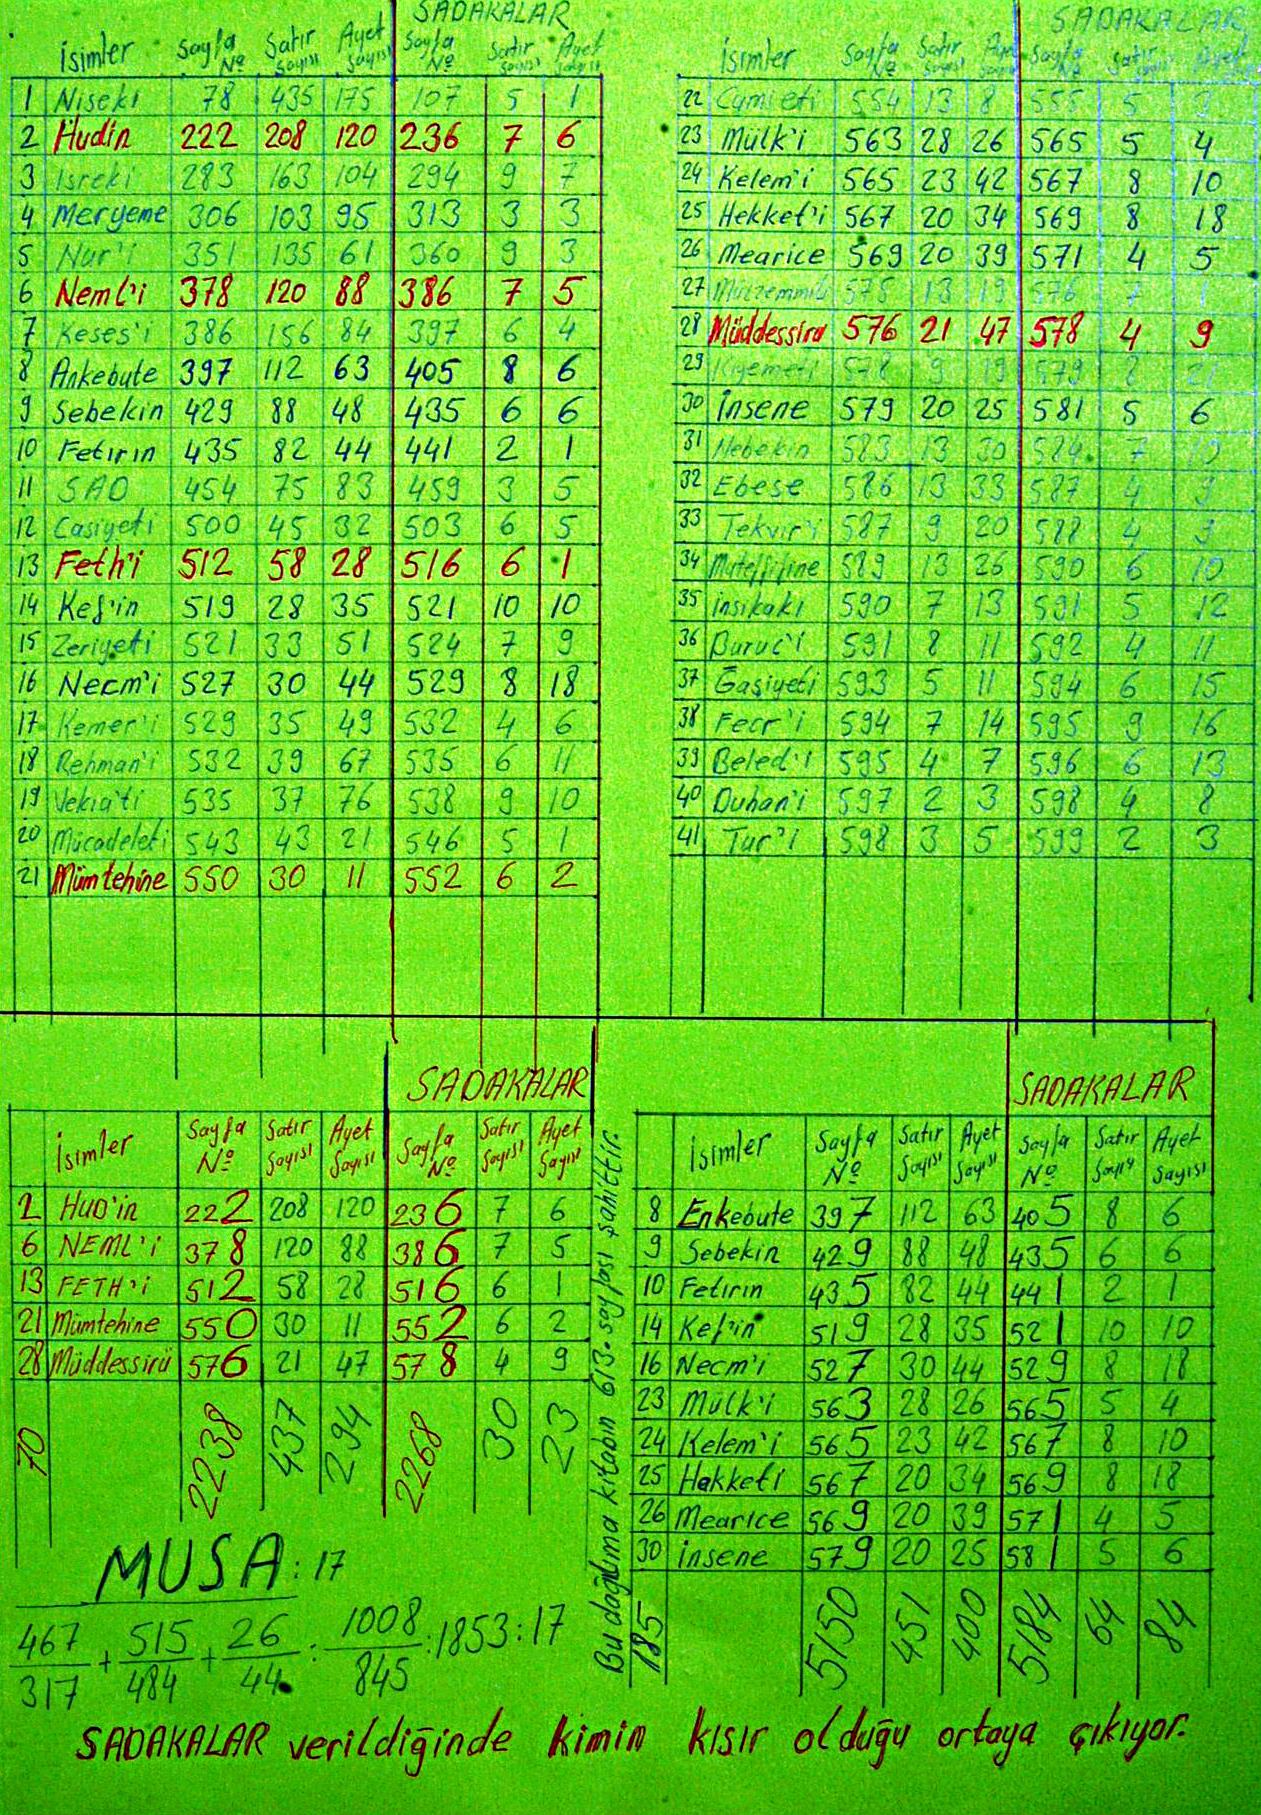 SADAKALAR
İsimler Sayfa Nº Satır Sayısı Ayet Sayısı Sayfa Nº Satır Sayısı Ayet Sayısı
1 Niseki 78 435 175 107 5 1
2 Hudin 222 208 120 236 7 6
3 İsreki 283 163 104 294 9 7
4 Meryeme 306 103 95 313 3 3
5 Nur'i 351 135 61 360 9 3
6 Neml'i 378 120 88 386 7 5
7 Keses'i 386 156 84 397 6 4
8 Ankebute 397 112 63 405 8 6
9 Sebekin 429 88 48 435 6 6
10 Fetırın 435 82 44 441 2 1
11 SAD 454 75 83 459 3 5
12 Casiyeti 500 45 32 503 6 5
13 Feth'i 512 58 28 516 6 1
14 Kef'in 519 28 35 521 10 10
15 Zeriyeti 521 33 51 524 7 9
16 Necm'i 527 30 44 529 8 18
17 Kemer'i 529 35 49 532 4 6
18 Rehman'i 532 39 67 535 6 11
19 Vekıa'ti 535 37 76 538 9 10
20 Mücadeleti 543 43 21 546 5 1
21 Mümtehine 550 30 11 552 6 2
SADAKALAR
İsimler Sayfa Nº Satır Sayısı Ayet Sayısı Sayfa Nº Satır Sayısı Ayet Sayısı
22 Cumueti 554 13 8 555 5
23 Mülk'i 563 28 26 565 5 4
24 Kelem'i 565 23 42 567 8 10
25 Hekket'i 567 20 34 569 8 18
26 Mearice 569 20 39 571 4 5
27 Müzzemmili 575 13 19 576 7
28 Müddessiru 576 21 47 578 4 9
29 Kıyemeti 578 9 19 579
30 İnsene 579 20 25 581 5 6
31 Nebekin 583 13 30 584 7 10
32 Ebese 586 13 33 587 4 9
33 Tekvir'i 587 9 20 588 4 9
34 Muteffifine 589 13 26 590 6 10
35 İnsikaki 590 7 13 591 5 12
36 Buruc'i 591 8 11 592 4 11
37 Ğaşiyeti 593 5 11 594 6 15
38 Fecr'i 594 7 14 595 9 16
39 Beled'i 595 4 7 596 6 13
40 Duhan'i 597 2 3 598 4 8
41 Tur'i 598 3 5 599 2 3
SADAKALAR
İsimler Sayfa Nº Satır Sayısı Ayet Sayısı Sayfa Nº Satır Sayısı Ayet Sayısı
2 HUD'in 222 208 120 236 7 6
6 NEML'i 378 120 88 386 7 5
13 FETH'i 512 58 28 516 6 1
21 Mümtehine 550 30 11 552 6 2
28 Müddessirü 576 21 47 578 4 9
70 2238 437 294 2268 30 23
MUSA: 17
467/317 + 515/484 + 26/44 : 1008/845 : 1853 : 17
Bu dağılıma kitabın 613. sayfası şahittir.
SADAKALAR
İsimler Sayfa Nº Satır Sayısı Ayet Sayısı Sayfa Nº Satır Sayısı Ayet Sayısı
8 Enkebute 397 112 63 405 8 6
9 Sebekin 429 88 48 435 6 6
10 Fetırın 435 82 44 441 2 1
14 Kef'in 519 28 35 521 10 10
16 Necm'i 527 30 44 529 8 18
23 Mülk'i 563 28 26 565 5 4
24 Kelem'i 565 23 42 567 8 10
25 Hekketi 567 20 34 569 8 18
26 Mearice 569 20 39 571 4 5
30 İnsene 579 20 25 581 5 6
185 5150 451 400 5184 64 84
SADAKALAR verildiğinde kimin kısır olduğu ortaya çıkıyor.